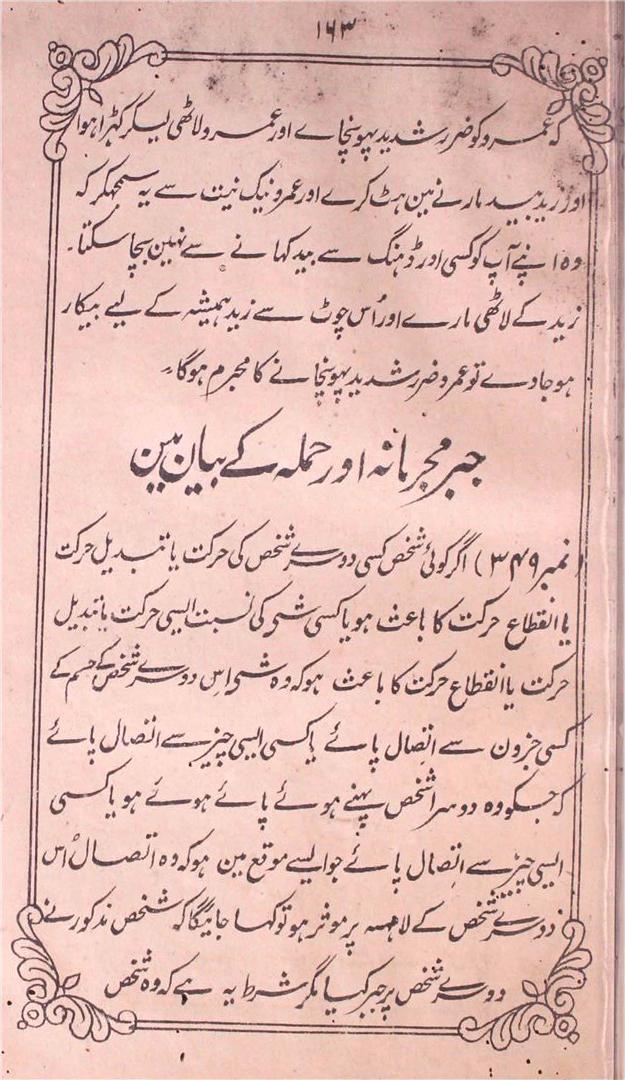 ۱۶۳
کہ عمرو کو ضرر شدید پہونچاے اور عمرو لاٹھی لیکر کھڑا ہوا
اور زید بید مارنے مین ہٹ کرے اور عمرو نیک نیت سے یہ سمجھکر کہ
وہ اپنے آپ کو کسی اور ڈہنگ سے بید کہانے سے نہین بچا سکتا۔
زید کے لاٹھی مارے اور اُس چوٹ سے زید ہمیشہ کے لیے بیکار
ہوجاوے تو عمرو ضرر شدید پہونچانے کا مجرم ہوگا۔
جبر مجرمانہ اور حملہ کے بیان مین
(نمبر ۳۴۹) اگر کوئی شخص کسی دوسرے شخص کی حرکت یا تبدیل حرکت
یا انقطاع حرکت کا باعث ہو یا کسی شی کی نسبت ایسی حرکت یا تبدیل
حرکت یا انقطاع حرکت کا باعث ہو کہ وہ شی اس دوسرے شخص کے جسم کے
کسی جزون سے اتصال پائے یا کسی ایسی چیز سے اتصال پائے
کہ جسکو وہ دوسرا شخص پہنے ہوئے یا لئے ہوئے ہو یا کسی
ایسی چیز سے اتصال پائے جو ایسے موقع مین ہو کہ وہ اتصال اُس
دوسرے شخص کے لامسہ پر موثر ہو تو کہا جائیگا کہ شخص مذکور نے
دوسرے شخص پر جبر کیا مگر شرط یہ ہے کہ وہ شخص